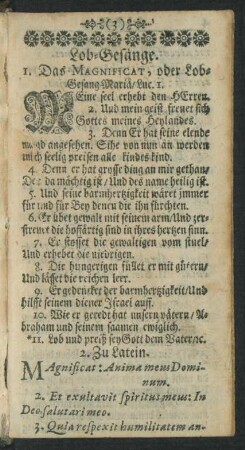 (3)
Lob-Gesänge.
1. Das MAGNIFICAT, oder Lob-
Gesang Mariä/ Luc. 1.
MEine seel erhebt den HErren.
2. Und mein geist freuet sich
Gottes meines Heylandes.
3. Denn Er hat seine elende
magd angesehen. Sihe von nun an werden
mich seelig preisen alle kindes kind.
4. Denn er hat grosse ding an mir gethan/
Der da mächtig ist/ Und des name heilig ist.
5. Und seine barmhertzigkeit wäret immer
für und für Bey denen die ihn fürchten.
6. Er übet gewalt mit seinem arm/ Und zer-
streuet die hoffärtig sind in ihres hertzen sinn.
7. Er stosset die gewaltigen vom stuel/
Und erhebet die niedrigen.
8. Die hungerigen füllet er mit gütern/
Und lässet die reichen leer.
9. Er gedencket der barmhertzigkeit/ Und
hilfft seinem diener Israel auff.
10. Wie er geredt hat unsern vätern/ A-
braham und seinem saamen ewiglich.
*11. Lob und preiß sey Gott dem Vater/ ꝛc.
2. Zu Latein.
MAgnificat: Anima meus Domi-
num.
2. Et exultavit spiritus meus: In
Deo salutari meo.
3. Quia respexit humilitatem an-